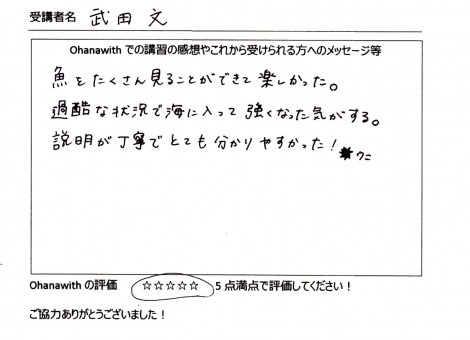 受講者名 武田 文
Ohanawith での講習の感想やこれから受けられる方へのメッセージ等
魚をたくさん見ることができて楽しかった。
過酷な状況で海に入って強くなった気がする。
説明が丁寧でとても分かりやすかった!
ウニ
Ohanawith の評価 ☆☆☆☆☆ 5 点満点で評価してください!
ご協力ありがとうございました!